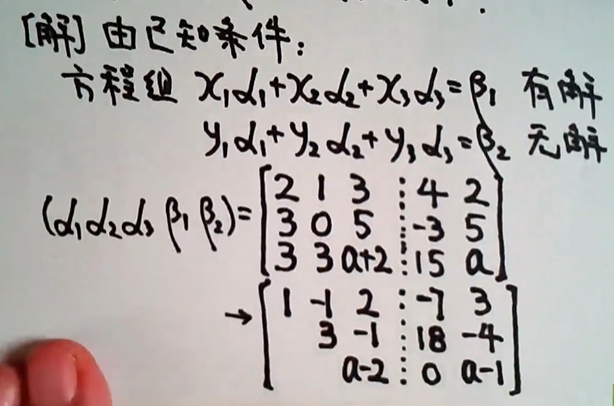 [解] 由已知条件:
方程组 x₁α₁+x₂α₂+x₃α₃=β₁ 有解
y₁α₁+y₂α₂+y₃α₃=β₂ 无解
(α₁α₂α₃ β₁ β₂)=[2 1 3 ⋮ 4 2
3 0 5 ⋮ -3 5
3 3 a+2 ⋮ 15 a]
→[1 -1 2 ⋮ -7 3
3 -1 ⋮ 18 -4
a-2 ⋮ 0 a-1]